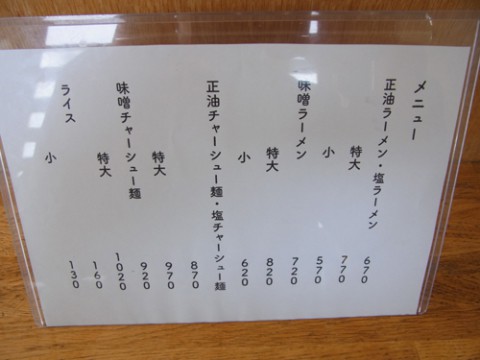 メニュー
正油ラーメン・塩ラーメン 670
特大 770
小 570
味噌ラーメン 720
特大 820
小 620
正油チャーシュー麺・塩チャーシュー麺 870
特大 970
味噌チャーシュー麺 920
特大 1020
ライス 160
小 130